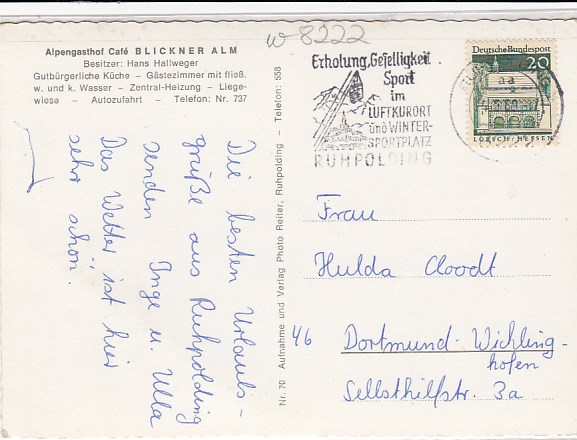 w 8222
Alpengasthof Café BLICKNER ALM
Besitzer: Hans Hallweger
Gutbürgerliche Küche – Gästezimmer mit fließ.
w. und k. Wasser – Zentral-Heizung – Liege-
wiese – Autozufahrt – Telefon: Nr. 737
Die besten Urlaubs-
grüße aus Ruhpolding
senden Inge u. Ulla
Das Wetter ist hier
sehr schön.
Nr. 70 Aufnahme und Verlag Photo Reiter, Ruhpolding – Telefon: 558
Erholung, Geselligkeit
Sport
im
LUFTKURORT
und WINTER-
SPORTPLATZ
RUHPOLDING
Deutsche Bundespost
20
LORSCH/HESSEN
aa
Frau
Hulda Cloodt
46 Dortmund-Wichling-
hofen
Selbsthilfstr. 3a